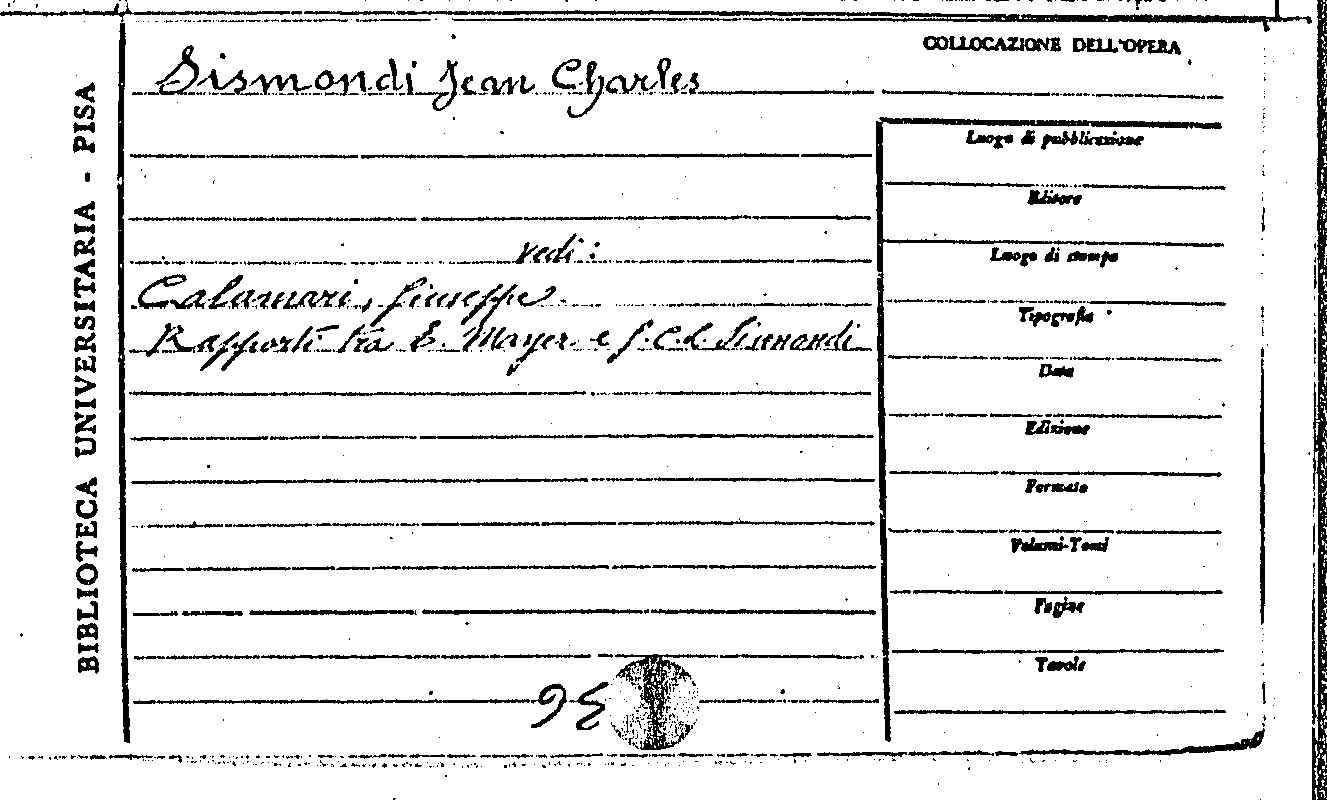 COLLOCAZIONE DELL'OPERA
Sismondi Jean Charles
BIBLIOTECA UNIVERSITARIA - PISA
vedi:
Calamari, Giuseppe
Rapporti tra E. Mayer e G.C.L. Sismondi
Luogo di pubblicazione
Editore
Luogo di stampa
Tipografia
Data
Edizione
Formato
Volumi-Tomi
Pagine
Tavole